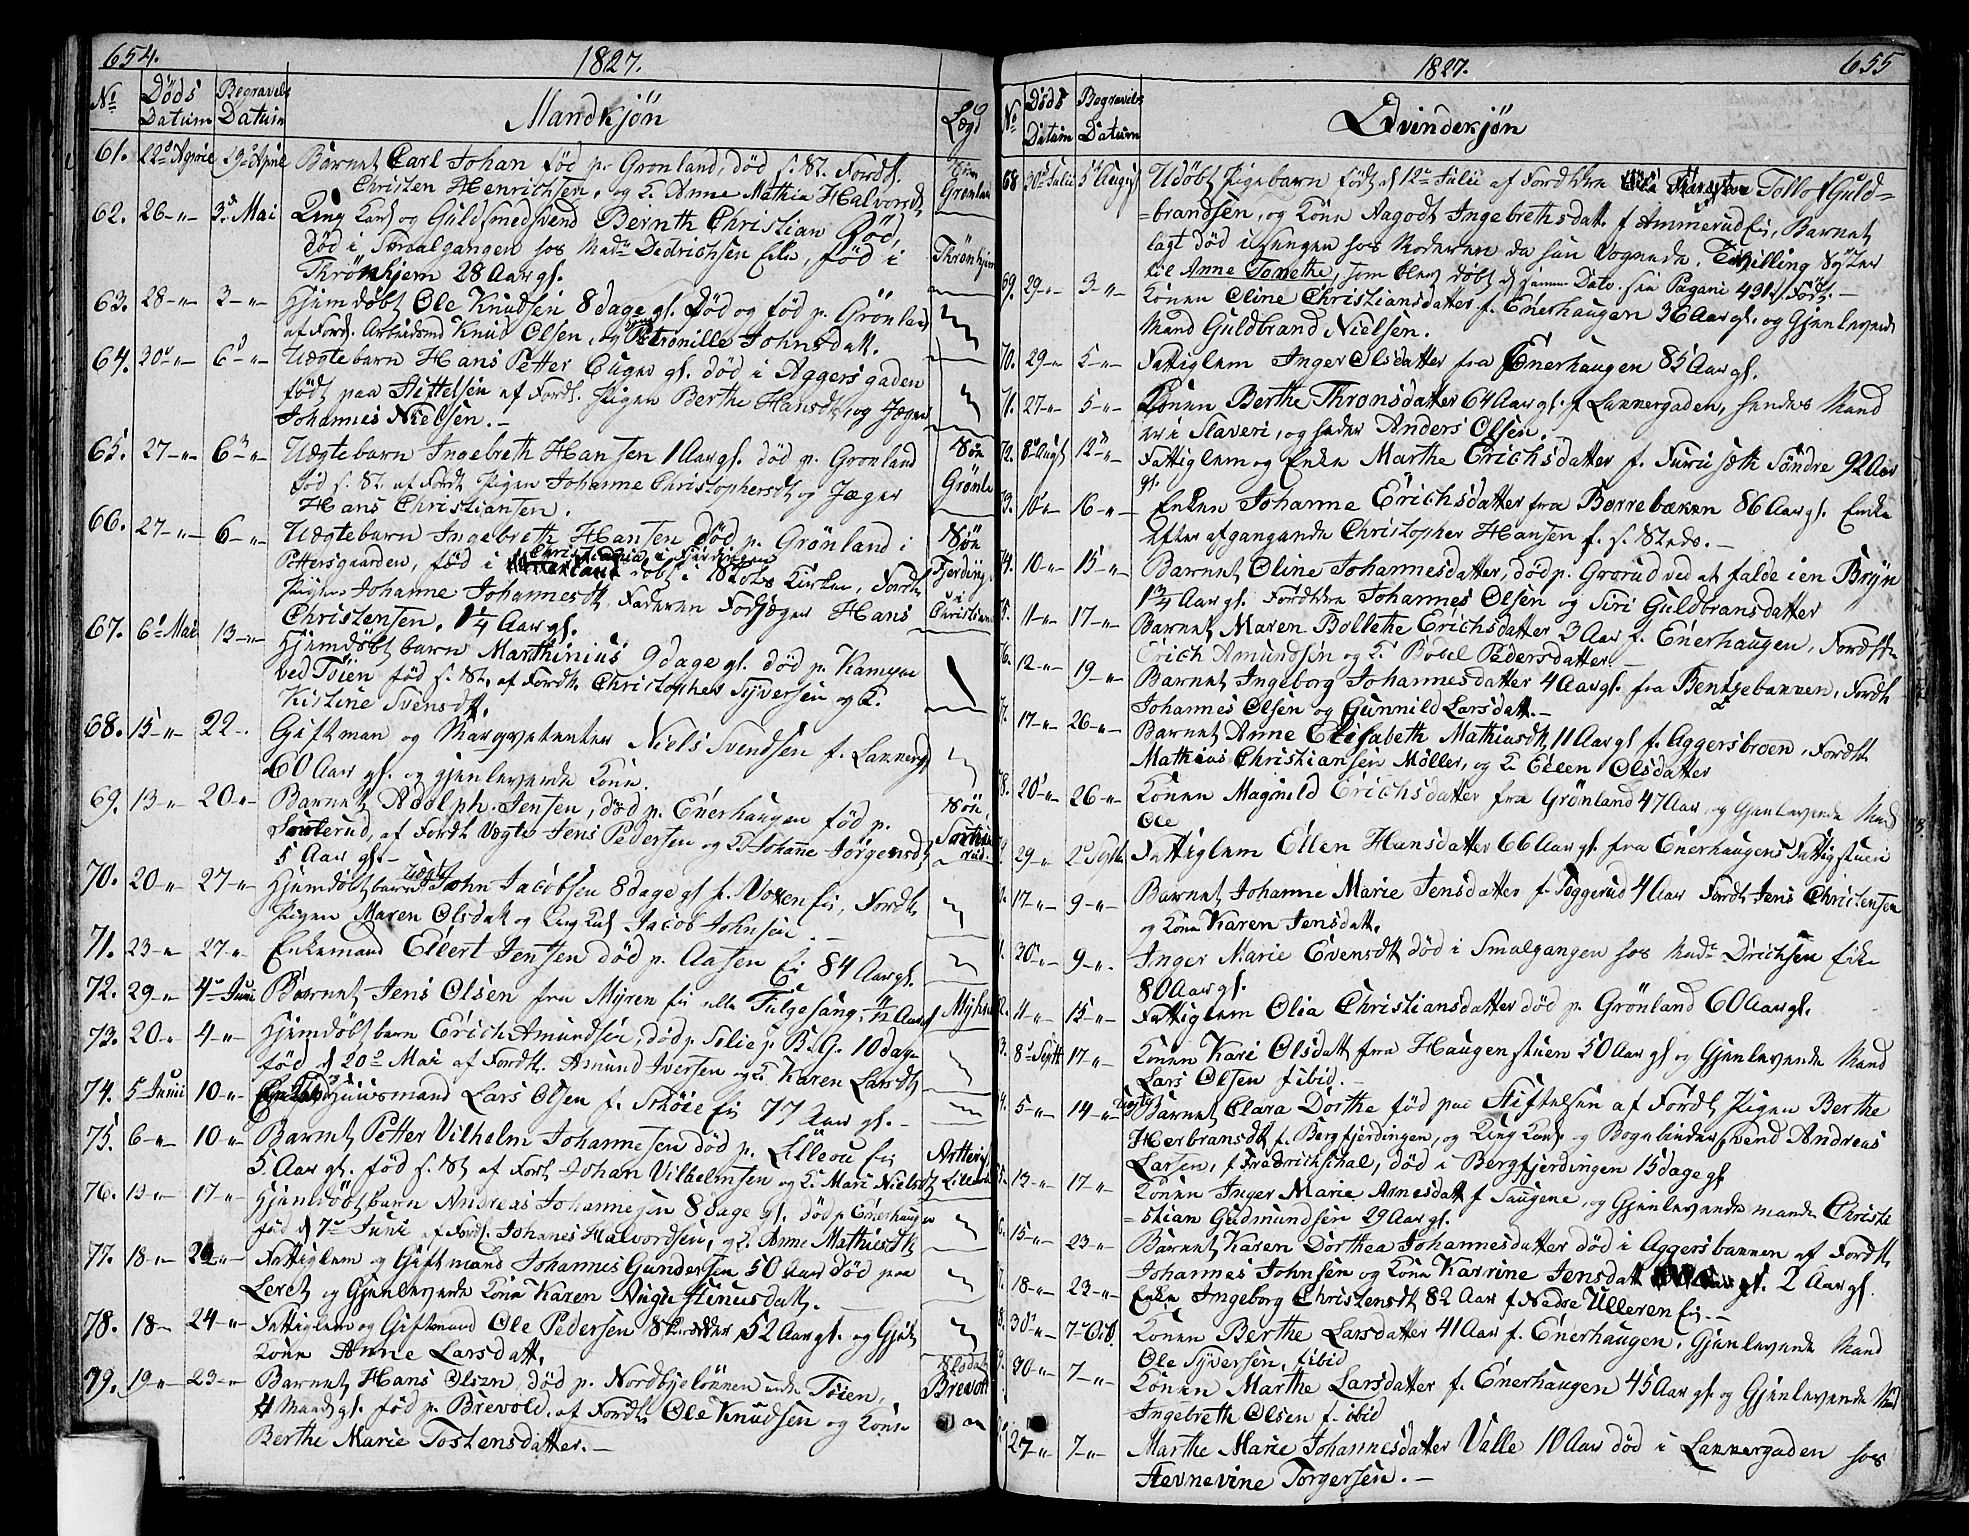 654.
1827.
No Døds Datum Begravels Datum Mandkjön Lægd
61. 22d Aprie 29d Aprie Barnet Carl Johan född p. Gronland, död s. St. Fordl.
Christen Henrichsen, og K. Anne Mathia Halvorsdt Grønland
62. 26-"- 3d Mai Ung Karl og Guldsmedsvend Bernth Christian Röd,
död i Smaalgangen hos Made Dedrichsen Eke, föd i Thrönhjem
Thrönhjem 28 Aar gl.
63. 28-"- 3-"- Hjemdøbt Ole Knudsen 8 dage gl. Död og föd p. Grönland
af Fordl. Arbeidsmd Knud Olsen, og Petronille Johnsdatt.
64. 30d-"- 6d-"- Uægtebarn Hans Petter Euger gl. död i Aggersgaden
født paa Stittelsen af Fordl. Pigen Berthe Hansdt, og Jæger
Johannes Nielsen.-
65. 27-"- 6-"- Uægtebarn Ingebreth Hansen 1 Aar gl. död p. Gronland Søn
föd s. St. af Fordl. Pigen Johanne Christophersdt og Jæger Grönl.
Hans Christiansen.
66. 27-"- 6-"- Uægtebarn Ingebreth Hansen död p. Grönland i Søn
Pettersgaarden, föd i Christiania i Fjerdingen döbt i Kirken, Fordl. Fjerding
Pigen Johanne Johannesdt, Faderen Fodjæger Hans i Christiania
Christensen. 1 1/4 Aar gl.
67. 6d Mai 13-"- Hjemdøbt barn Marthinius 9 dage gl. död p. Kampen
ved Töien föd s. St. af Fordl. Christopher Syversen og K.
Kistine Svensdt.
68. 15-"- 22-. Giftman og Margvetenter Niels Svendsen f. Lannergd
60 Aar gl. og gjenlevende Kone.
69. 13-"- 20-"- Barnet Adolph Jensen, død p. Enerhaugen föd p. Søn,
Sorterud, af Fordl. Vægte Jens Pedersen og K. Johanne Jörgensdt, Sorterud.
5 Aar gl.-
70. 20-"- 27-"- Hjemdöbt barn uægte John Jacobsen 8 dage gl. f. Voxen Ei, Fordl.
Pigen Maren Olsdatt og Ung Karl Jacob Johnsen.-
71. 23-"- 27-"- Enkemand Ellert Jensen död p. Aasen Ei 84 Aar gl.
72. 29-"- 4d Juni Barnet Jens Olsen fra Myren Ei elle Fulgesang, 11/12 Aar gl Myhren
73. 20-"- 4-"- Hjemdöbt barn Erich Amundsen, död p. Solie p. B.G. 10 dage
föd d 20d Mai af Fordl. Amund Iversen og K. Karen Larsdt
74. 5 Junii 10-"- Huusmand Lars Olsen f. Schöie Ei 77 Aar gl.-
75. 6-"- 10-"- Barnet Petter Vilhelm Johannesen död p. Lilleöe Ei
5 Aar gl. föd s. St af Fordl. Johan Vilhelmsen og K. Mari Nielsdt
76. 13-"- 17-"- Hjemdöbt barn Andreas Johannesen 8 dage gl. död p Enerhaugen
föd d 7d Juni af Fordl. Johanes Halvordsen, og K. Anne Mathiesdt
77. 18-"- 24-"- Fattiglem og Giftmand Johannes Gundersen 50 Aar död paa
Leret og Gjenlevende Kone Karen Augustinusdatt.
78. 18- 24-"- Fattiglem og Giftmand Ole Pedersen 52 Aar gl. og Gjl.
Kone Anne Larsdatt.
79. 19-"- 23-"- Barnet Hans Olsen död p. Nordbyelökken under Töien,
4 Maad gl. föd p. Brevold af Fordl. Ole Knudsen og Kone Brevold
Berthe Marie Tostensdatter.-
1827.
655
No Døds Datum Begravels Datum Qvindekjön
68 30d Julii 5d August Udöbt Pigebarn född d 12te Julii af Fordldre Tollof Guld-
=brandsen, og Kone Aagodt Ingebrethsdatt. f Ammerud Ei, Barnet
lagt död i Sengen hos Moderen da hun Vognede, Tvilling Syster
til Anne Tonethe, som blev döbt
69. 29-"- 3-"- Konen Oline Christiansdatter f. Enerhaugen 36 Aar gl. og Gjenlevende
Mand Guldbrand Nielsen.
70. 29-"- 5-"- Fattiglem Inger Olsdatter fra Enerhaugen 85 Aar gl.
71. 27-"- 5-"- Konen Berthe Thronsdatter 64 Aar gl. f Lannergaden, hendes Mand
er i Slaveri, og heder Anders Olsen.
72. 8d Augs 12-"- Fattiglem og Enke Marthe Erichsdatter f. Furusæth Søndre 92 Aar
gl.
73. 10-"- 16-"- Enken Johanne Erichsdatter fra Borrebæken 86 Aar gl. Enke
Efter afgangende Christopher Hansen f. s. Steds.-
74. 10-"- 15-"- Barnet Oline Johannesdatter, död p. Grorud ved at falde i en Brÿn
1 3/4 Aar gl. Fordldre Johannes Olsen og Siri Guldbransdatter
75. 11-"- 17-"- Barnet Maren Bollethe Erichsdatter 3 Aar f. Enerhaugen, Fordldre
Erich Amundsen og K. Bodel Pedersdatter.-
76. 12-"- 19-"- Barnet Ingeborg Johannesdatter 4 Aar gl. fra Bentsebakken, Fordl.
Johannes Olsen og Gunnild Larsdatt.-
7. 17-"- 26-"- Barnet Anne Elisabeth Mathiasdt 11 Aar gl f. Aggersbroen, Fordl.
Mathias Christiansen Möller, og K Ellen Olsdatter
78. 20d-"- 26-"- Konen Magnild Erichsdatter fra Grönland 47 Aar, og Gjenlevende Mand
Ole
29-"- 2d Septbr Fattiglem Ellen Hansdatter 66 Aar gl. fra Enerhaugens Fattigstuen
17-"- 9-"- Barnet Johanne Marie Jensdatter f. Teggerud 4 Aar Fordl. Jens Christensen
og Kone Karen Jensdatt.
30-"- 9-"- Inger Marie Evensdt död i Smalgangen hos Made Drichsen Eke
80 Aar gl.
2. 11-"- 15-"- Fattiglem Olia Christiansdatter död p. Grönland 60 Aar gl.
3. 8d Septb 17-"- Konen Kari Olsdatt fra Haugenstuen 50 Aar gl og Gjenlevende Mand
Lars Olsen f ibid.-
4. 5-"- 14-"- Uægte Barnet Clara Dorthe föd paa Stiftelsen af Fordl. Pigen Berthe
Herbransdt f. Bergfjerdingen, og Ung Karl og Bogbindersvend Andreas
Larsen, f Fredrichshal, död i Bergfjerdingen 15 dage gl
5. 13-"- 17-"- Konen Inger Marie Arnesdatt f Saugene, og Gjenlevende mande Christi
=stian Gudmundsen 29 Aar gl.
6. 15-"- 23-"- Barnet Karen Dorthea Johannesdatter död i Aggersbakken af Fordl.
Johannes Johnsen og Kone Karrine Jensdatt 2 Aar gl.
7. 18-"- 23-"- Enke Ingeborg Christensdt 82 Aar f Nedre Ulleren Ei.-
8. 30d-"- 7d Octb. Konen Berthe Larsdatter 41 Aar f. Enerhaugen, Gjenlevende Mand
Ole Syversen, f ibid
9. 30-"- 7-"- Konen Marthe Larsdatter f. Enerhaugen 45 Aar gl. og Gjenlevende Md
Ingebreth Olsen f. ibid
27-"- 7-"- Marthe Marie Johannesdatter Valle 10 Aar död i Lannergaden hos
Stevnevine Torgersen.-